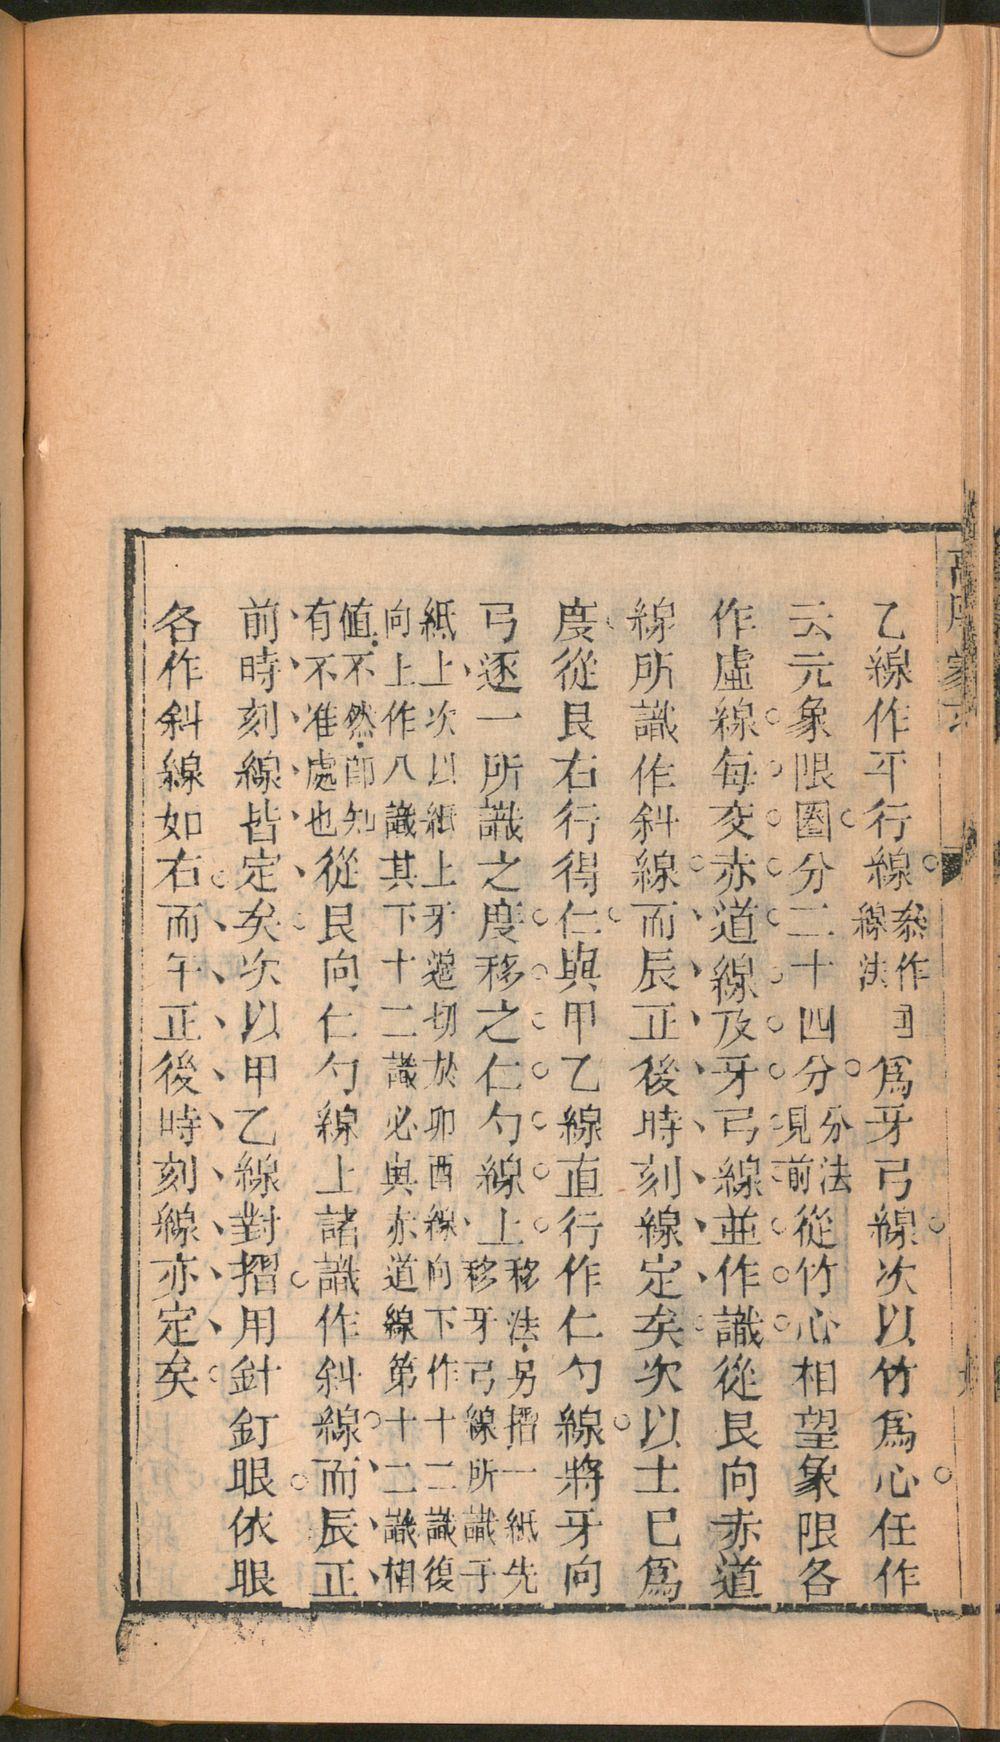 乙線作平行線叅作線法曰爲牙弓線次以竹爲心任作
云元象限圈分二十四分分法見前從竹心相望象限各
作虛線每交赤道線及牙弓線並作識從艮向赤道
線所識作斜線而辰正後時刻線定矣次以土巳爲
度從艮右行得仁與甲乙線直行作仁勺線將牙向
弓逐一所識之度移之仁勺線上移法另摺一紙先移牙弓線所識于
紙上次以紙上牙邉切於卯酉線向下作十二識復向上作八識其下十二識必與赤道線第十二識相
值不然卽知有不准處也從艮向仁勺線上諸識作斜線而辰正
前時刻線皆定矣次以甲乙線對摺用針釘眼依眼
各作斜線如右而午正後時刻線亦定矣